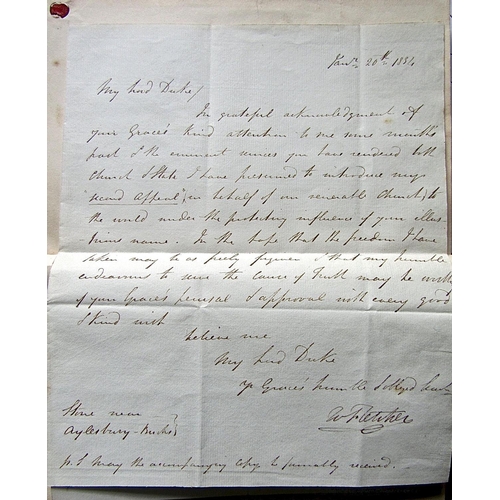 Jany. 20th 1834
My Lord Duke/
In grateful acknowledgment of
your Grace's kind attention to me some months
past & the eminent services you have rendered both
Church & State I have presumed to introduce my
"second Appeal" on behalf of our venerable Church, to
the world under the protecting influence of your illus-
trious name. In the hope that the freedom I have
taken may be as freely forgiven & that my humble
endeavours to serve the cause of Truth may be worthy
of your Grace's perusal & approval with every good
& kind wish
believe me
My Lord Duke
yr Grace's humble & obliged Servt
W Fletcher
Stone near
Aylesbury - Bucks
p.S may the accompanying copy be favorably received.